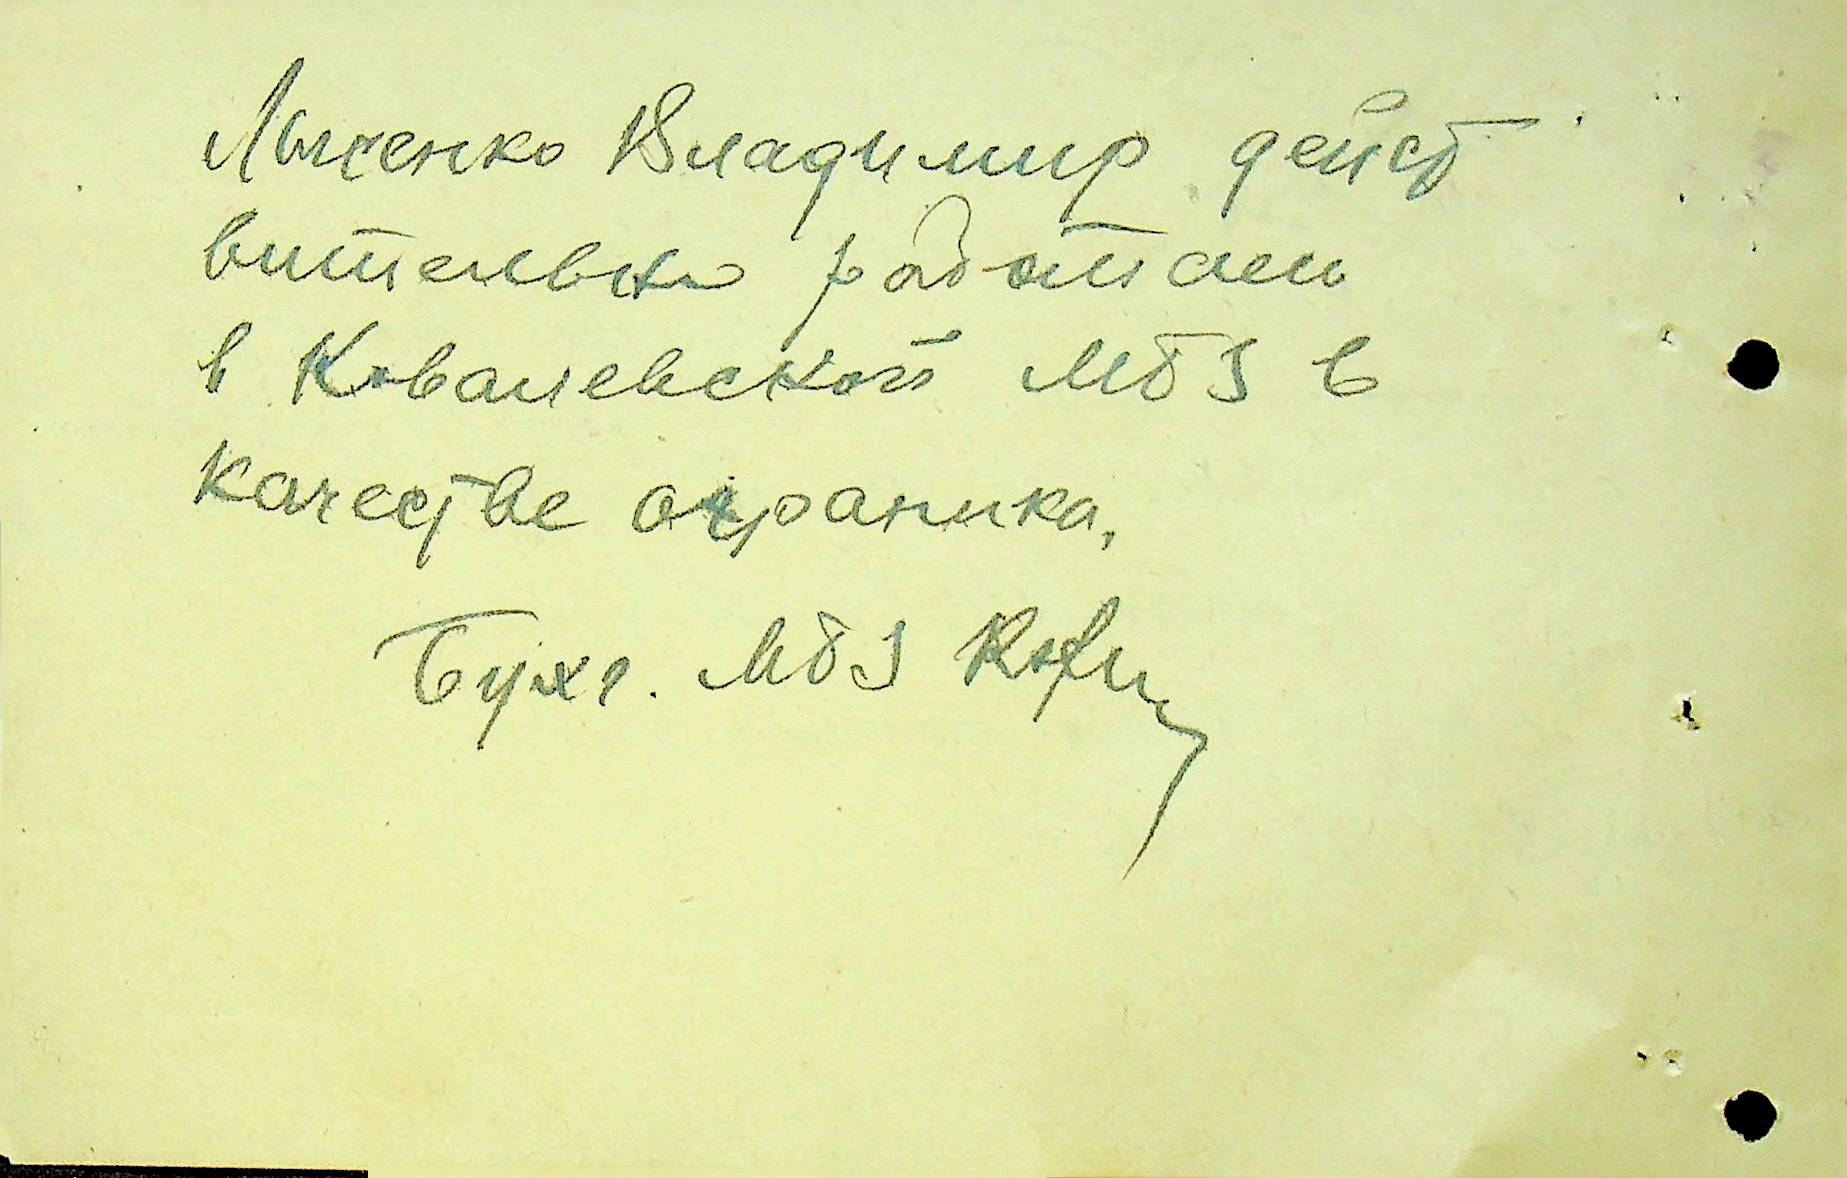 Лысенко Владимир дейст
вительно работает
в Ковалевской МТЗ в
качестве охраника,
Бухг. МТЗ